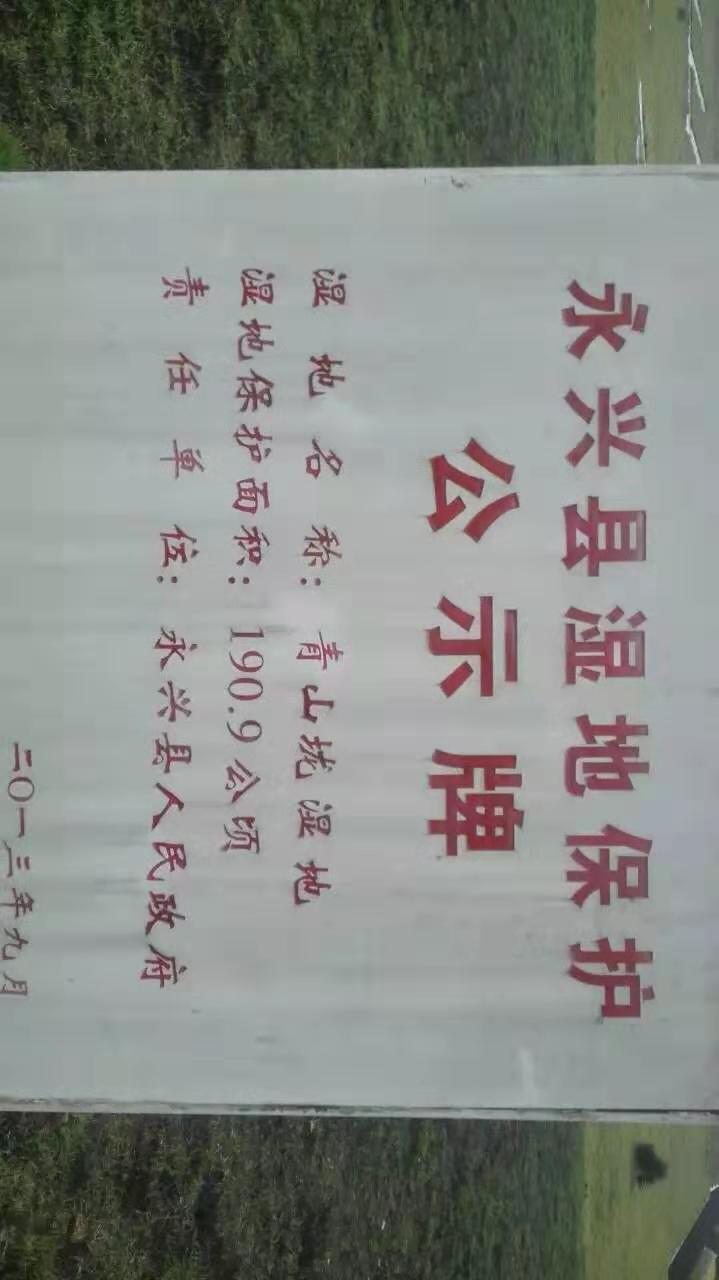 永兴县湿地保护
公示牌
湿地名称：青山垅湿地
湿地保护面积：190.9公顷
责任单位：永兴县人民政府
二〇一三年九月